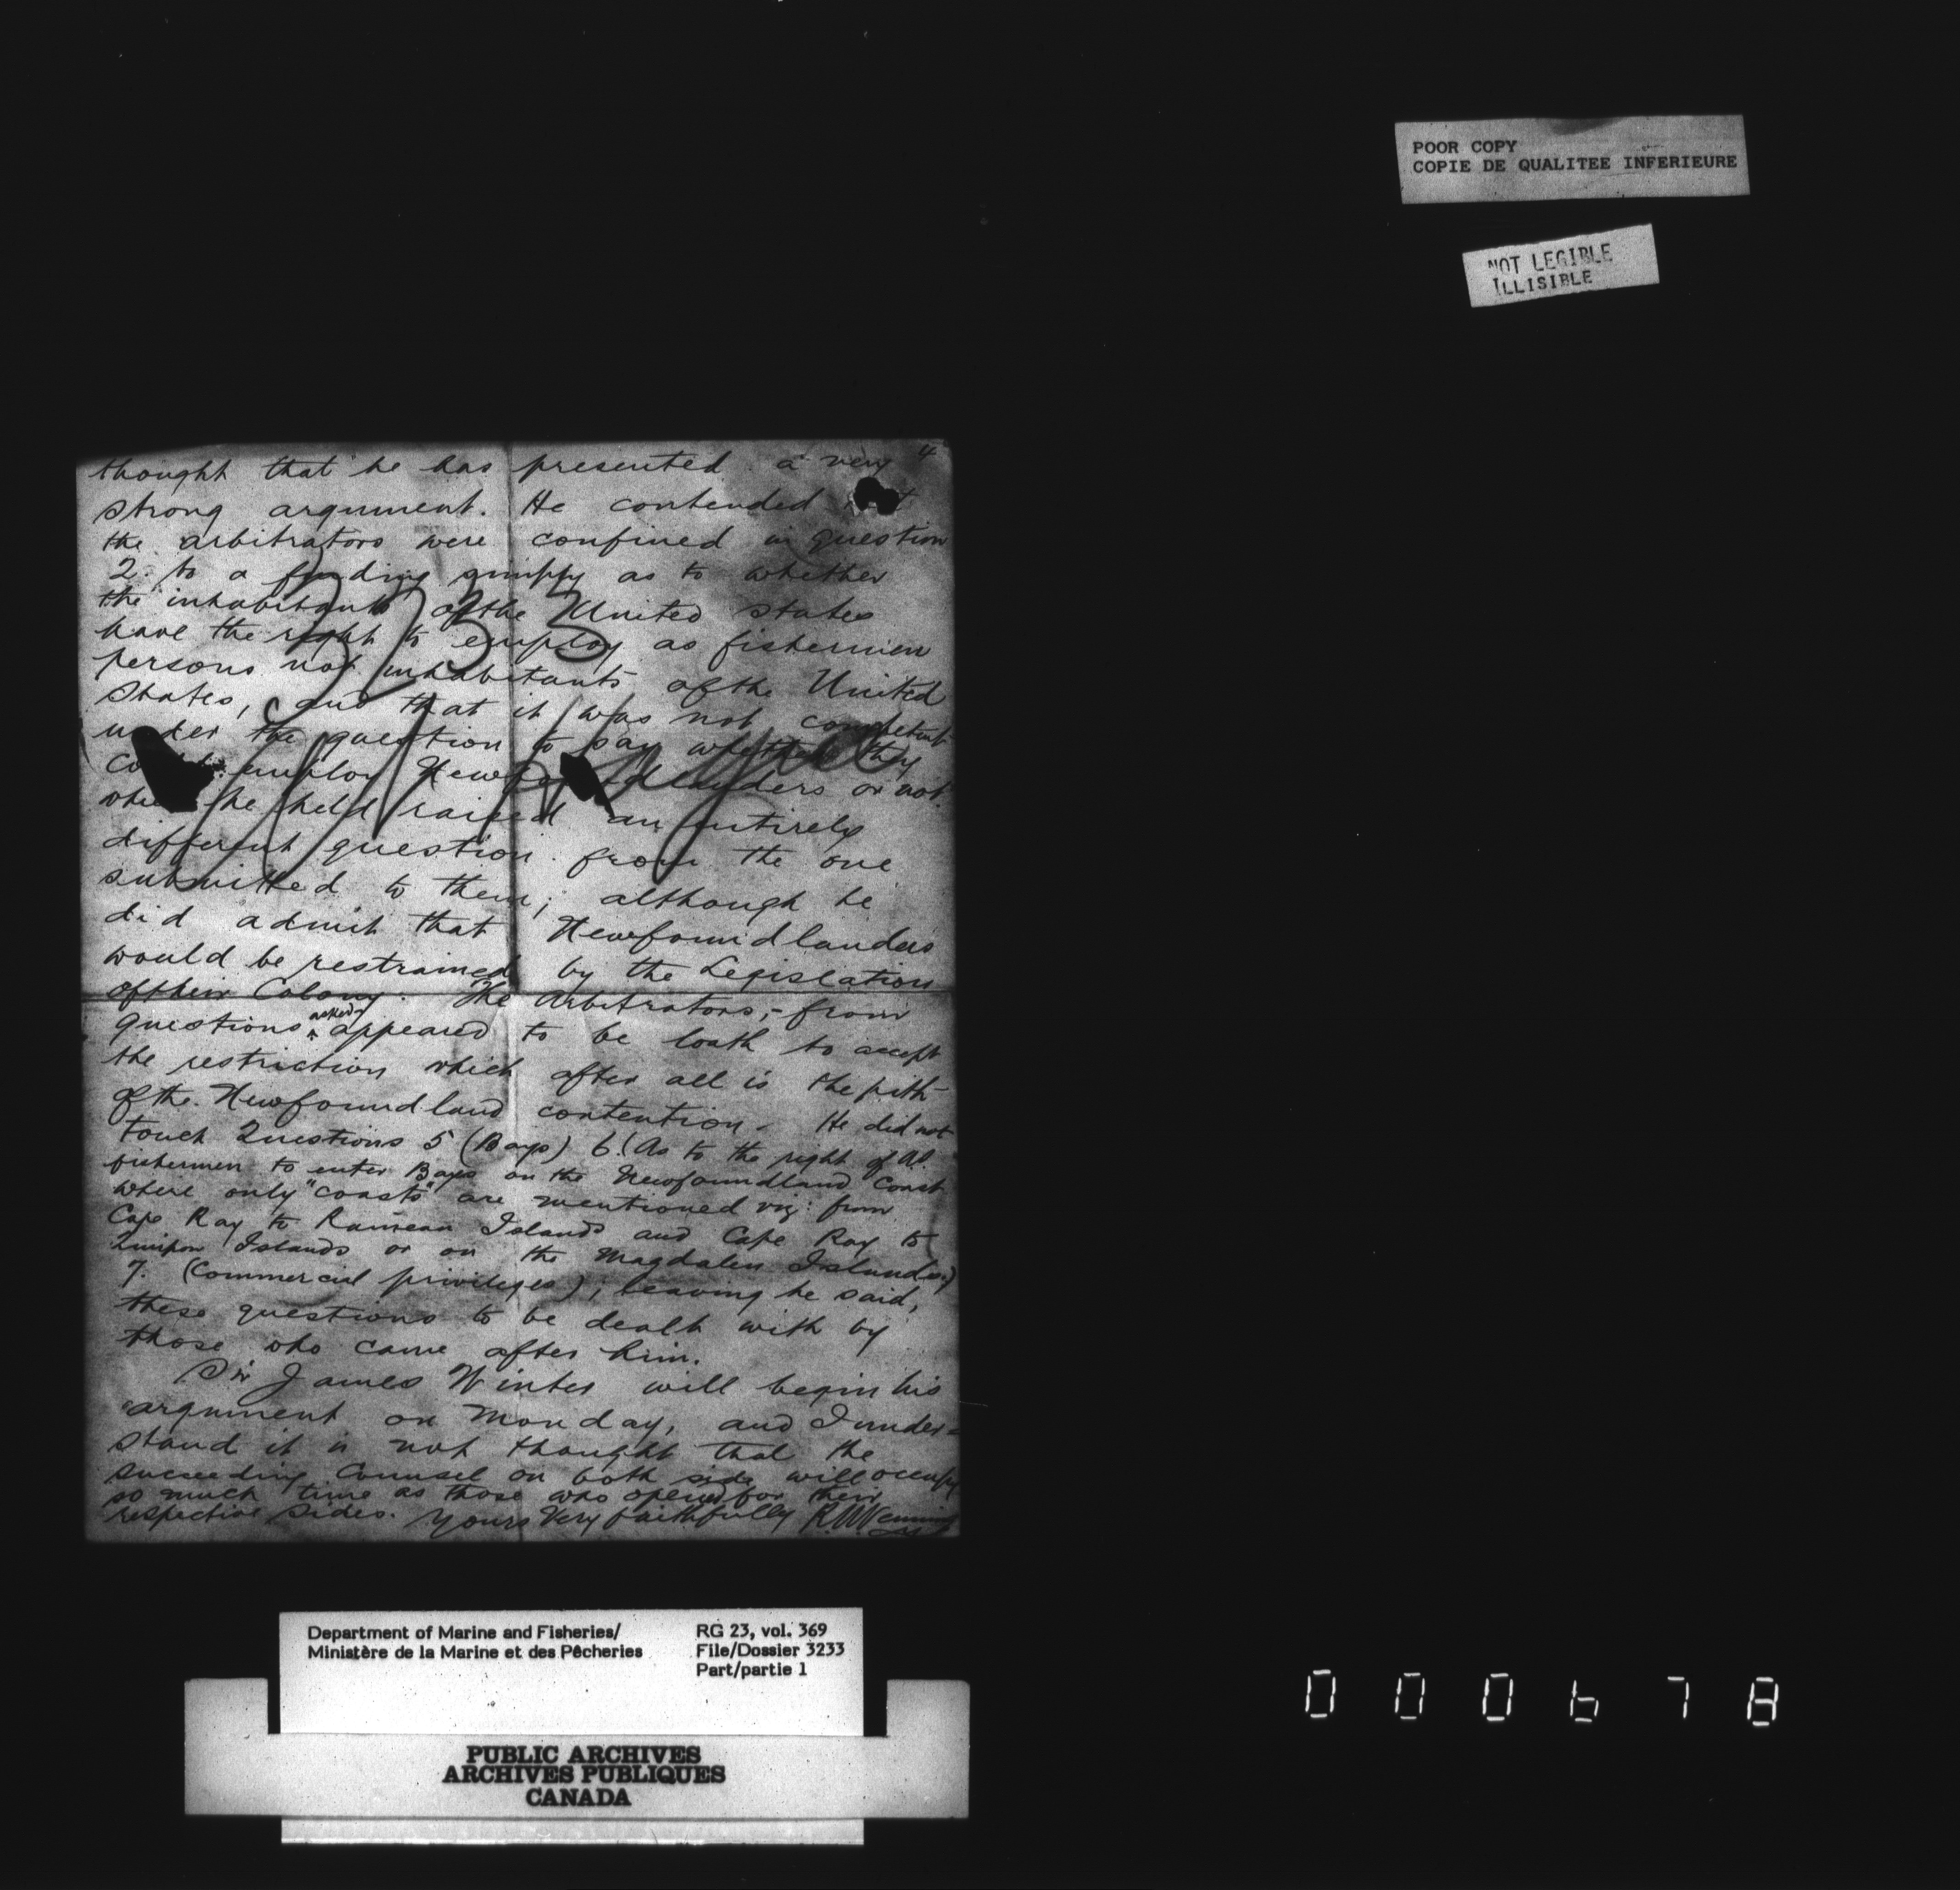 POOR COPY
COPIE DE QUALITEE INFERIEURE
NOT LEGIBLE
ILLISIBLE
4
thought that he has presented a very
strong argument. He contended
the arbitrators were confined in question
2. to a finding simply as to whether
the inhabitants of the United States
have the right to employ as fishermen
persons not inhabitants of the United
States, and that it was not competent
under the question to say whether they
employ Newfoundlanders or not
which he held raised an entirely
different question from the one
submitted to them; although he
did admit that Newfoundlanders
would be restrained by the Legislation
of their Colony. The Arbitrators, from
questions asked appeared to be loath to accept
the restriction which after all is the pith
of the Newfoundland contention. He did not
touch Questions 5 (Bays) 6. (As to the right of
fishermen to enter Bays on the Newfoundland Coast
where only "coasts" are mentioned viz: from
Cape Ray to Rameau Islands and Cape Ray to
Quirpon Islands or on the Magdalen Islands.)
7. (Commercial privileges); leaving he said,
these questions to be dealt with by
those who came after him.
Sir James Winter will begin his
argument on Monday, and I under-
stand it is not thought that the
succeeding Counsel on both side will occupy
so much time as those who opened for their
respective sides. Yours Very faithfully R.N. Venning
3233
Department of Marine and Fisheries/
Ministère de la Marine et des Pêcheries
RG 23, vol. 369
File/Dossier 3233
Part/partie 1
PUBLIC ARCHIVES
ARCHIVES PUBLIQUES
CANADA
000678